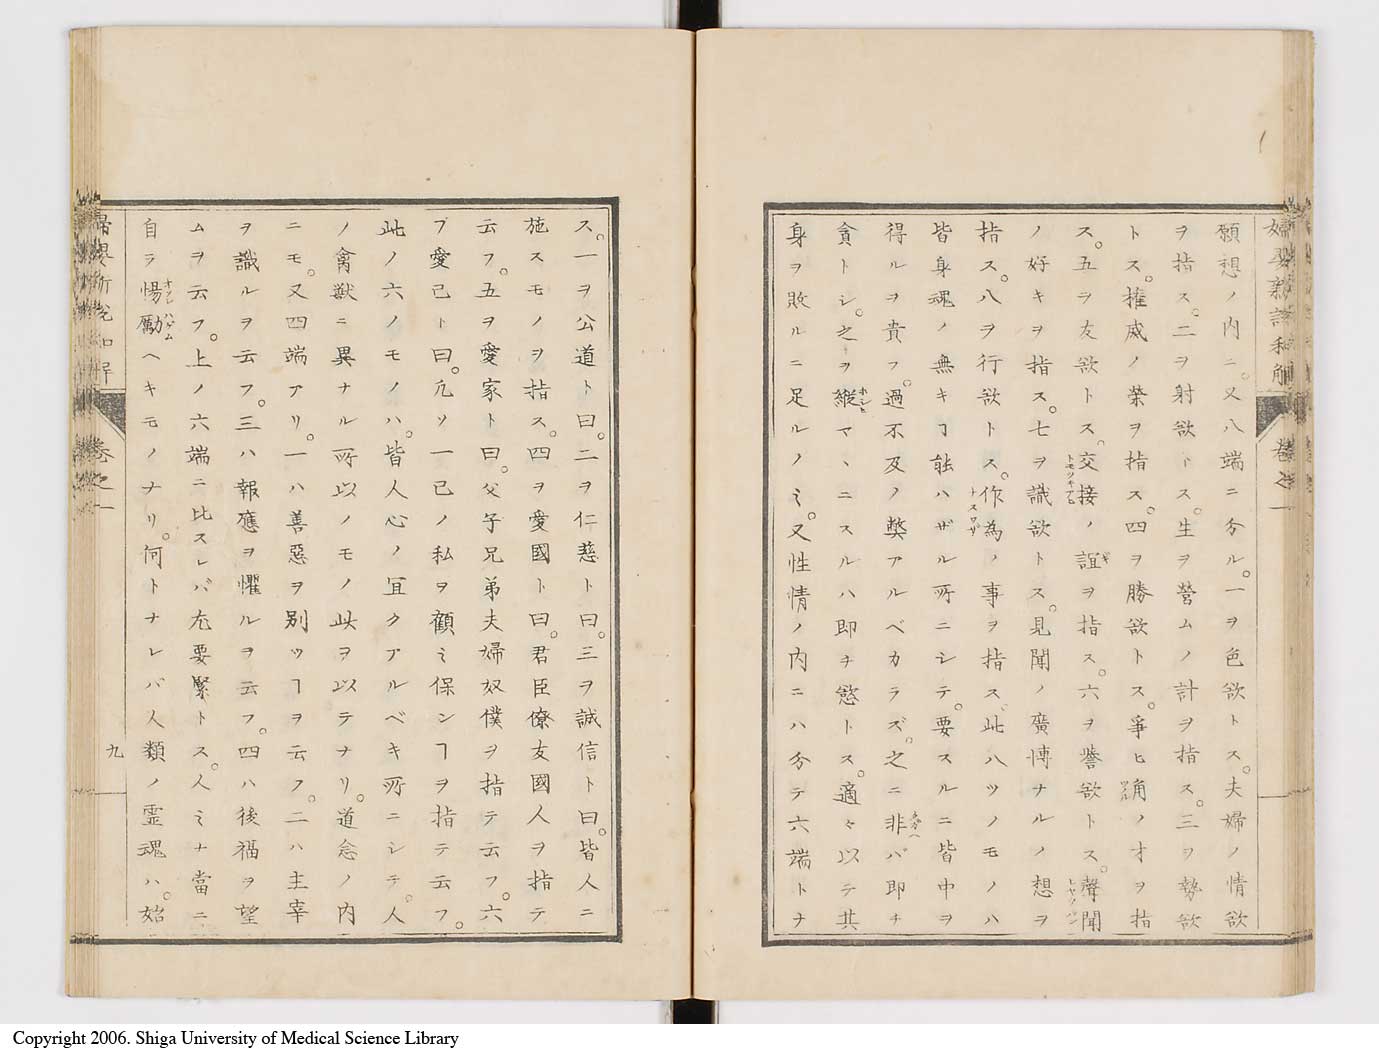 婦嬰新説和解
卷之一
願想ノ内ニ。又八端ニ分ル。一ヲ色欲トス。夫婦ノ情欲
ヲ指ス。二ヲ射欲トス。生ヲ營ムノ計ヲ指ス。三ヲ勢欲
トス。權威ノ榮ヲ指ス。四ヲ勝欲トス。爭ヒ角ノ才ヲ指
ス。五ヲ友欲トス。交接ノ誼ヲ指ス。六ヲ譽欲トス。聲聞
ノ好キヲ指ス。七ヲ識欲トス。見聞ノ廣博ナルノ想ヲ
指ス。八ヲ行欲トス。作為ノ事ヲ指ス。此八ツノモノハ
皆身魂ノ無キヿ能ハザル所ニシテ。要スルニ皆中ヲ
得ルヲ貴フ。過不及ノ獘アルベカラズ。之ニ非バ即チ
貪トシ。之ヲ縱マヽニスルハ即チ慾トス。適々以テ其
身ヲ敗ルニ足ルノミ。又性情ノ内ニハ分テ六端トナ
ス。一ヲ公道ト曰。二ヲ仁慈ト曰。三ヲ誠信ト曰。皆人ニ
施スモノヲ指ス。四ヲ愛國ト曰。君臣僚友國人ヲ指テ
云フ。五ヲ愛家ト曰。父子兄弟夫婦奴僕ヲ指テ云フ。六
ヲ愛己ト曰。凡ソ一已ノ私ヲ顧ミ保ンヿヲ指テ云フ。
此ノ六ノモノハ。皆人心ノ冝クアルベキ所ニシテ。人
ノ禽獣ニ異ナル所以ノモノ此ヲ以テナリ。道念ノ内
ニモ。又四端アリ。一ハ善惡ヲ別ツヿヲ云フ。二ハ主宰
ヲ識ルヲ云フ。三ハ報應ヲ懼ルヲ云フ。四ハ後福ヲ望
ムヲ云フ。上ノ六端ニ比スレバ尤要緊トス。人ミナ當ニ
自ラ惕勵ヘキモノナリ。何トナレバ人類ノ霊魂ハ。始
卷之一
九
Copyright 2006. Shiga University of Medical Science Library